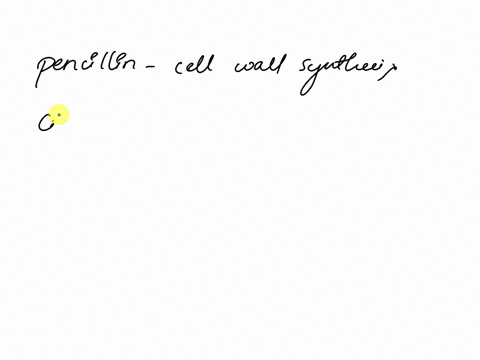 pencillin - cell wall synthesis